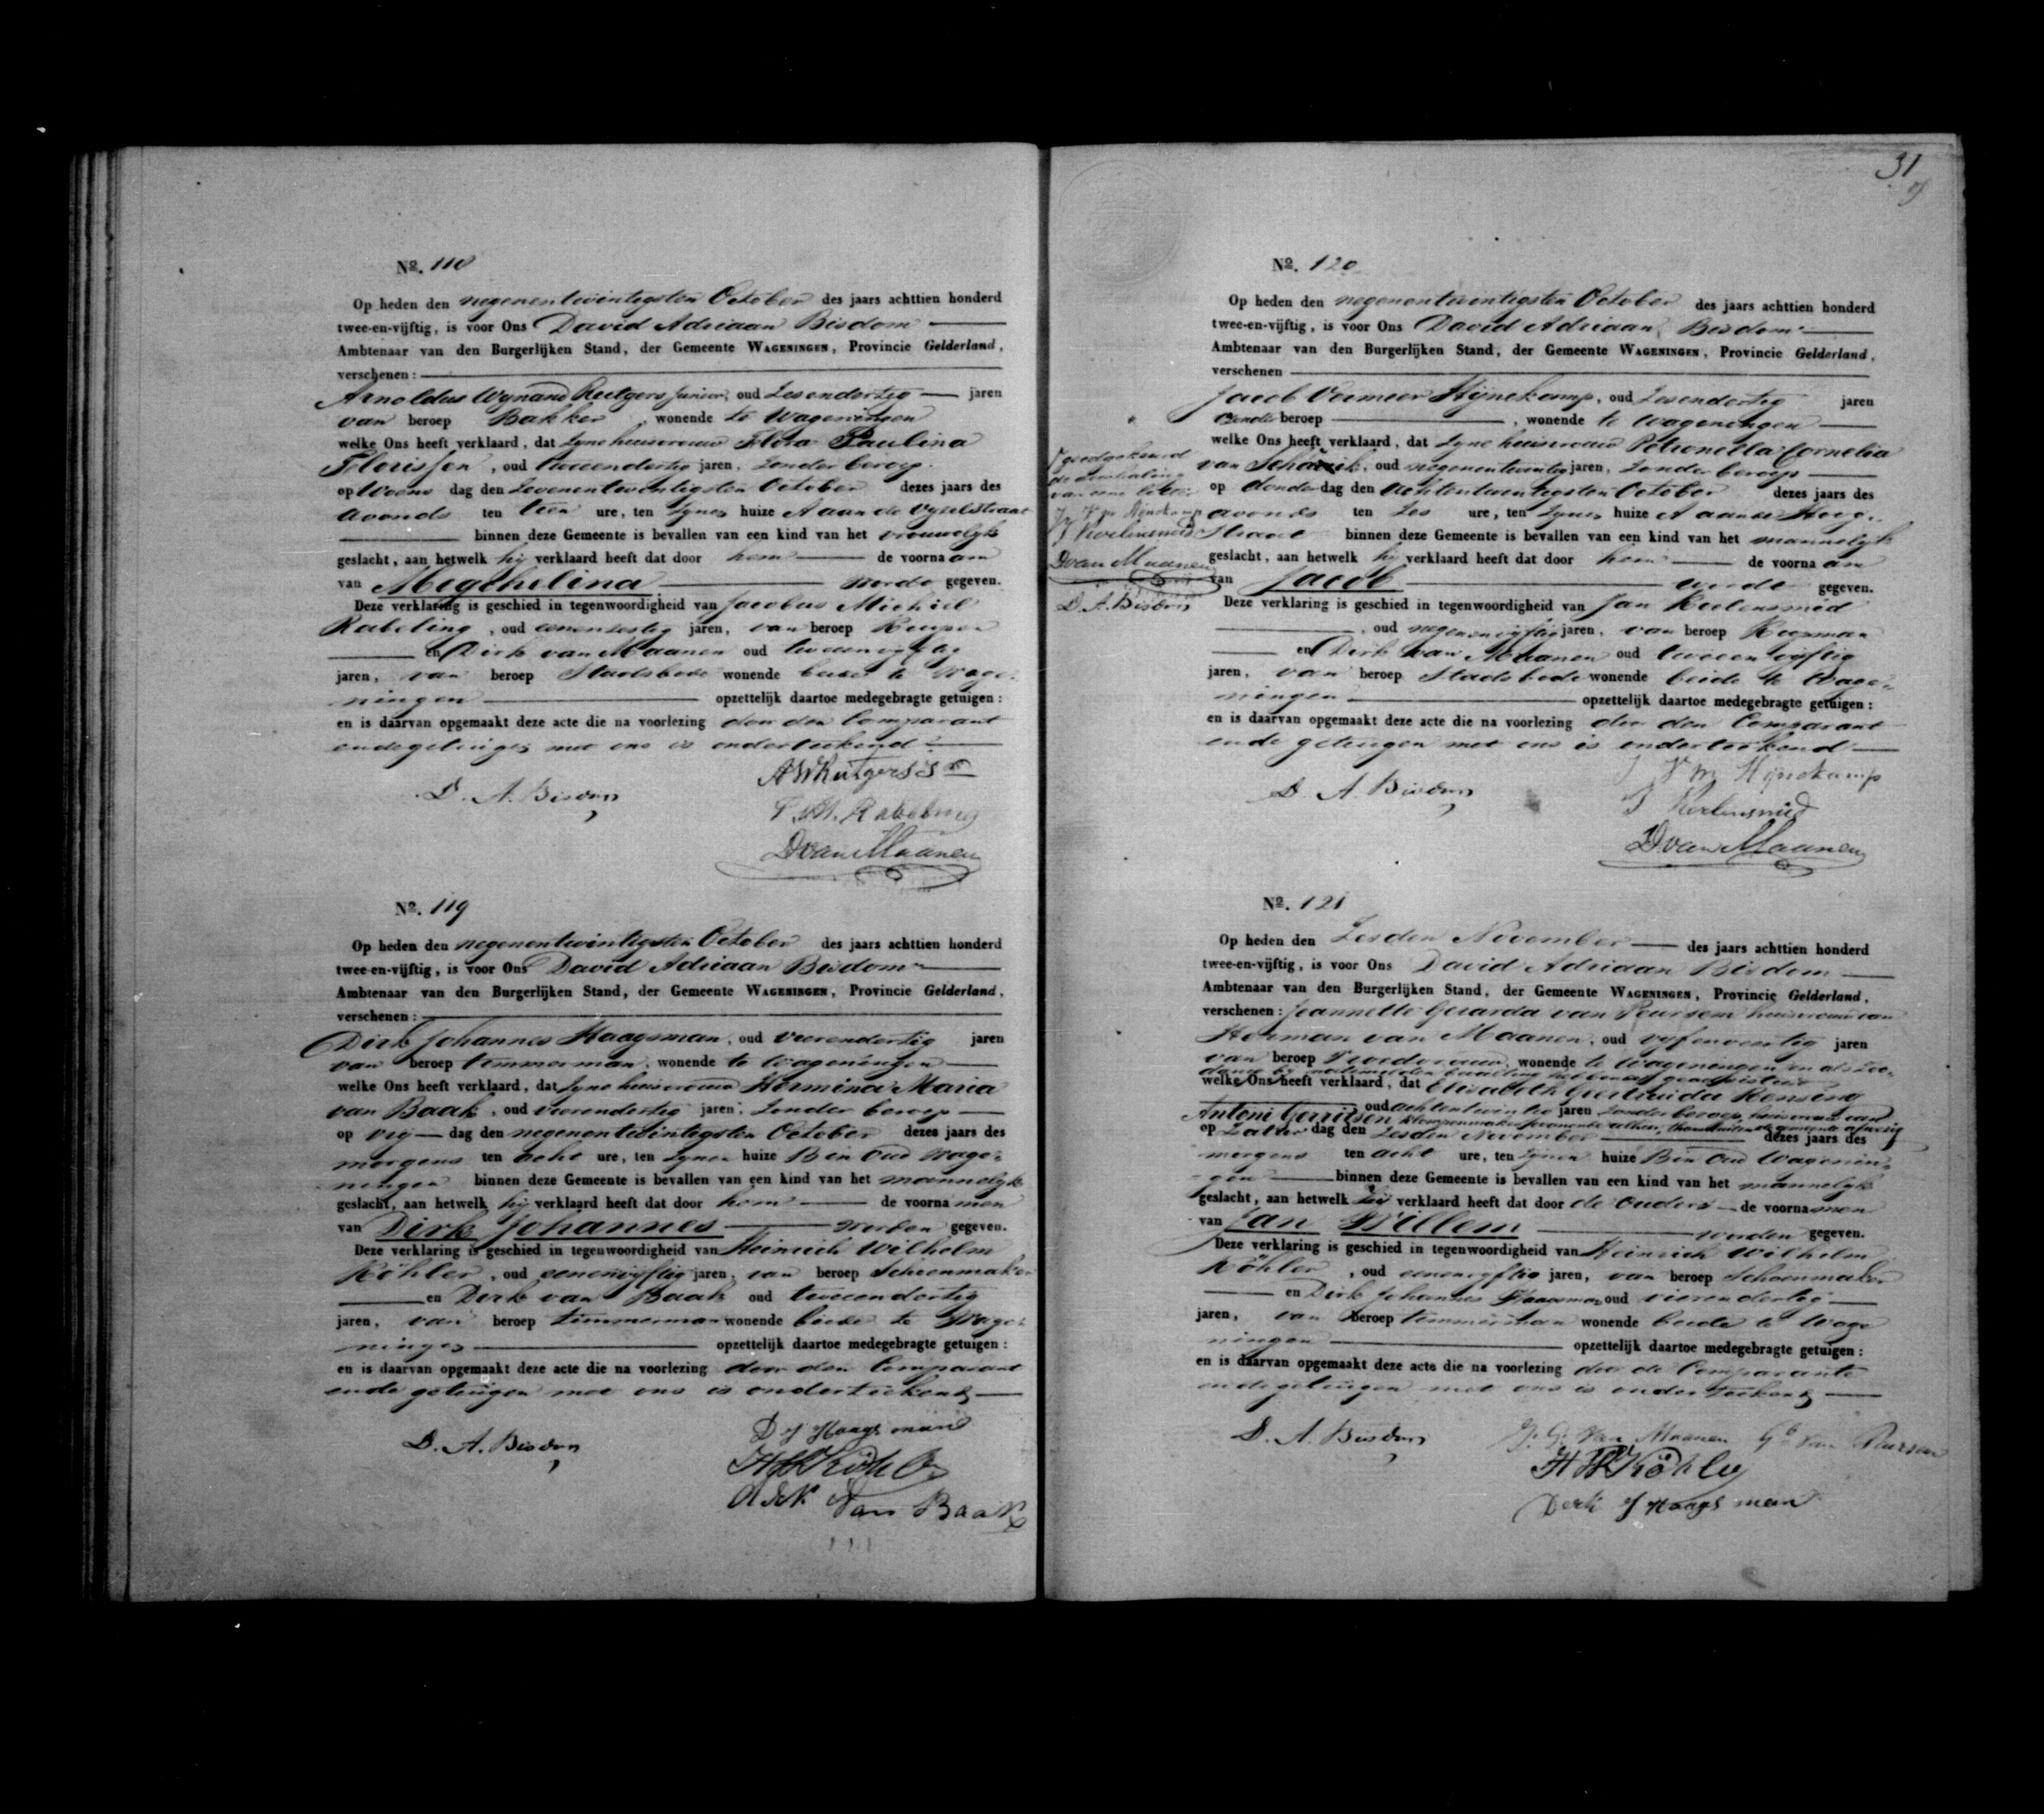 No. 118
Op heden den negenentwintigsten October des jaars achttien honderd
twee-en-vijftig, is voor Ons David Adriaan Bisdom
Ambtenaar van den Burgerlijken Stand, der Gemeente WAGENINGEN, Provincie Gelderland,
verschenen:
Arnoldus Wynand Rutgers Junior, oud Zesendertig jaren
van beroep Bakker, wonende te Wageningen
welke Ons heeft verklaard, dat zyne huisvrouw Flora Paulina
Florissen, oud tweeendertig jaren, zonder beroep
op Woens dag den Zevenentwintigsten October dezes jaars des
avonds ten tien ure, ten zynen huize A aan de Vyzelstraat
binnen deze Gemeente is bevallen van een kind van het vrouwelyk
geslacht, aan hetwelk hij verklaard heeft dat door hem de voornaam
van Megchelina worde gegeven.
Deze verklaring is geschied in tegenwoordigheid van Jacobus Michiel
Rabeling, oud eenenzestig jaren, van beroep Kuiper
en Dirk van Maanen oud tweeenvyftig
jaren, van beroep Stadsbode wonende beide te Wage-
ningen opzettelijk daartoe medegebragte getuigen:
en is daarvan opgemaakt deze acte die na voorlezing door den Comparant
en de getuigen met ons is onderteekend
D. A. Bisdom
AWRutgers Jr
J. M. Rabeling
DvanMaanen
No. 119
Op heden den negenentwintigsten October des jaars achttien honderd
twee-en-vijftig, is voor Ons David Adriaan Bisdom
Ambtenaar van den Burgerlijken Stand, der Gemeente WAGENINGEN, Provincie Gelderland,
verschenen:
Dirk Johannes Haagsman, oud vierendertig jaren
van beroep timmerman, wonende te Wageningen
welke Ons heeft verklaard, dat zyne huisvrouw Hermina Maria
van Baak, oud vierendertig jaren, zonder beroep
op Vrij dag den negenentwintigsten October dezes jaars des
morgens ten acht ure, ten zynen huize B en Oud Wage-
ningen binnen deze Gemeente is bevallen van een kind van het mannelyk
geslacht, aan hetwelk hij verklaard heeft dat door hem de voornamen
van Dirk Johannes worden gegeven.
Deze verklaring is geschied in tegenwoordigheid van Heinrich Wilhelm
Köhler, oud eenenvyftig jaren, van beroep Schoenmaker
en Derk van Baak oud tweeendertig
jaren, van beroep timmerman wonende beide te Wage-
ningen opzettelijk daartoe medegebragte getuigen:
en is daarvan opgemaakt deze acte die na voorlezing door den Comparant
en de getuigen met ons is onderteekend
D. A. Bisdom
D J Haagsman
HWKöhler
derk Van Baak
31
No. 120
Op heden den negenentwintigsten October des jaars achttien honderd
twee-en-vijftig, is voor Ons David Adriaan Bisdom
Ambtenaar van den Burgerlijken Stand, der Gemeente WAGENINGEN, Provincie Gelderland,
verschenen
Jacob Vermeer Hijnekamp, oud Zesendertig jaren
zonder beroep, wonende te Wageningen
welke Ons heeft verklaard, dat zyne huisvrouw Petronella Cornelia
van, oud negenentwintig jaren, zonder beroep
op donder dag den achtentwintigsten October dezes jaars des
avonds ten zes ure, ten zynen huize A aan de Hoog-
straat binnen deze Gemeente is bevallen van een kind van het mannelyk
geslacht, aan hetwelk hij verklaard heeft dat door hem de voornaam
van Jacob worde gegeven.
Deze verklaring is geschied in tegenwoordigheid van Jan Keelensmid
oud negenenvyftig jaren, van beroep Koopman
en Dirk van Maanen oud tweeenvyftig
jaren, van beroep Stadsbode wonende beide te Wage-
ningen opzettelijk daartoe medegebragte getuigen:
en is daarvan opgemaakt deze acte die na voorlezing door den Comparant
en de getuigen met ons is onderteekend
goedgekeurd
de doorhaling
van eene letter
J V m Hijnekamp
DvanMaanen
D. A. Bisdom
D. A. Bisdom
J V m Hijnekamp
DvanMaanen
No. 121
Op heden den Zesden November des jaars achttien honderd
twee-en-vijftig, is voor Ons David Adriaan Bisdom
Ambtenaar van den Burgerlijken Stand, der Gemeente WAGENINGEN, Provincie Gelderland,
verschenen: Jeannette Gerarda van Peursem huisvrouw van
Herman van Maanen, oud vyfenveertig jaren
van beroep Vroedvrouw, wonende te Wageningen en als zoo-
danig by natemelden bevalling hebbende geassisteerd
welke Ons heeft verklaard, dat Elisabeth Geertruida Hensing
oud achtentwintig jaren zonder beroep, huisvrouw van
Antoni Gerritsen klompenmaker wonende alhier, thans buiten de gemeente afwezig
op Zatur dag den Zesden November dezes jaars des
morgens ten acht ure, ten zynen huize B en Oud Wagenin-
gen binnen deze Gemeente is bevallen van een kind van het mannelyk
geslacht, aan hetwelk zij verklaard heeft dat door de ouders de voornamen
van Jan Willem worden gegeven.
Deze verklaring is geschied in tegenwoordigheid van Heinrich Wilhelm
Köhler, oud eenenvyftig jaren, van beroep Schoenmaker
en Dirk Johannes Haagsman oud vierendertig
jaren, van beroep timmerman wonende beide te Wage
ningen opzettelijk daartoe medegebragte getuigen:
en is daarvan opgemaakt deze acte die na voorlezing door de Comparante
en de getuigen met ons is onderteekend
D. A. Bisdom
J. G. Van Maanen Gb van Peursem
HWKöhler
Derk J Haagsman